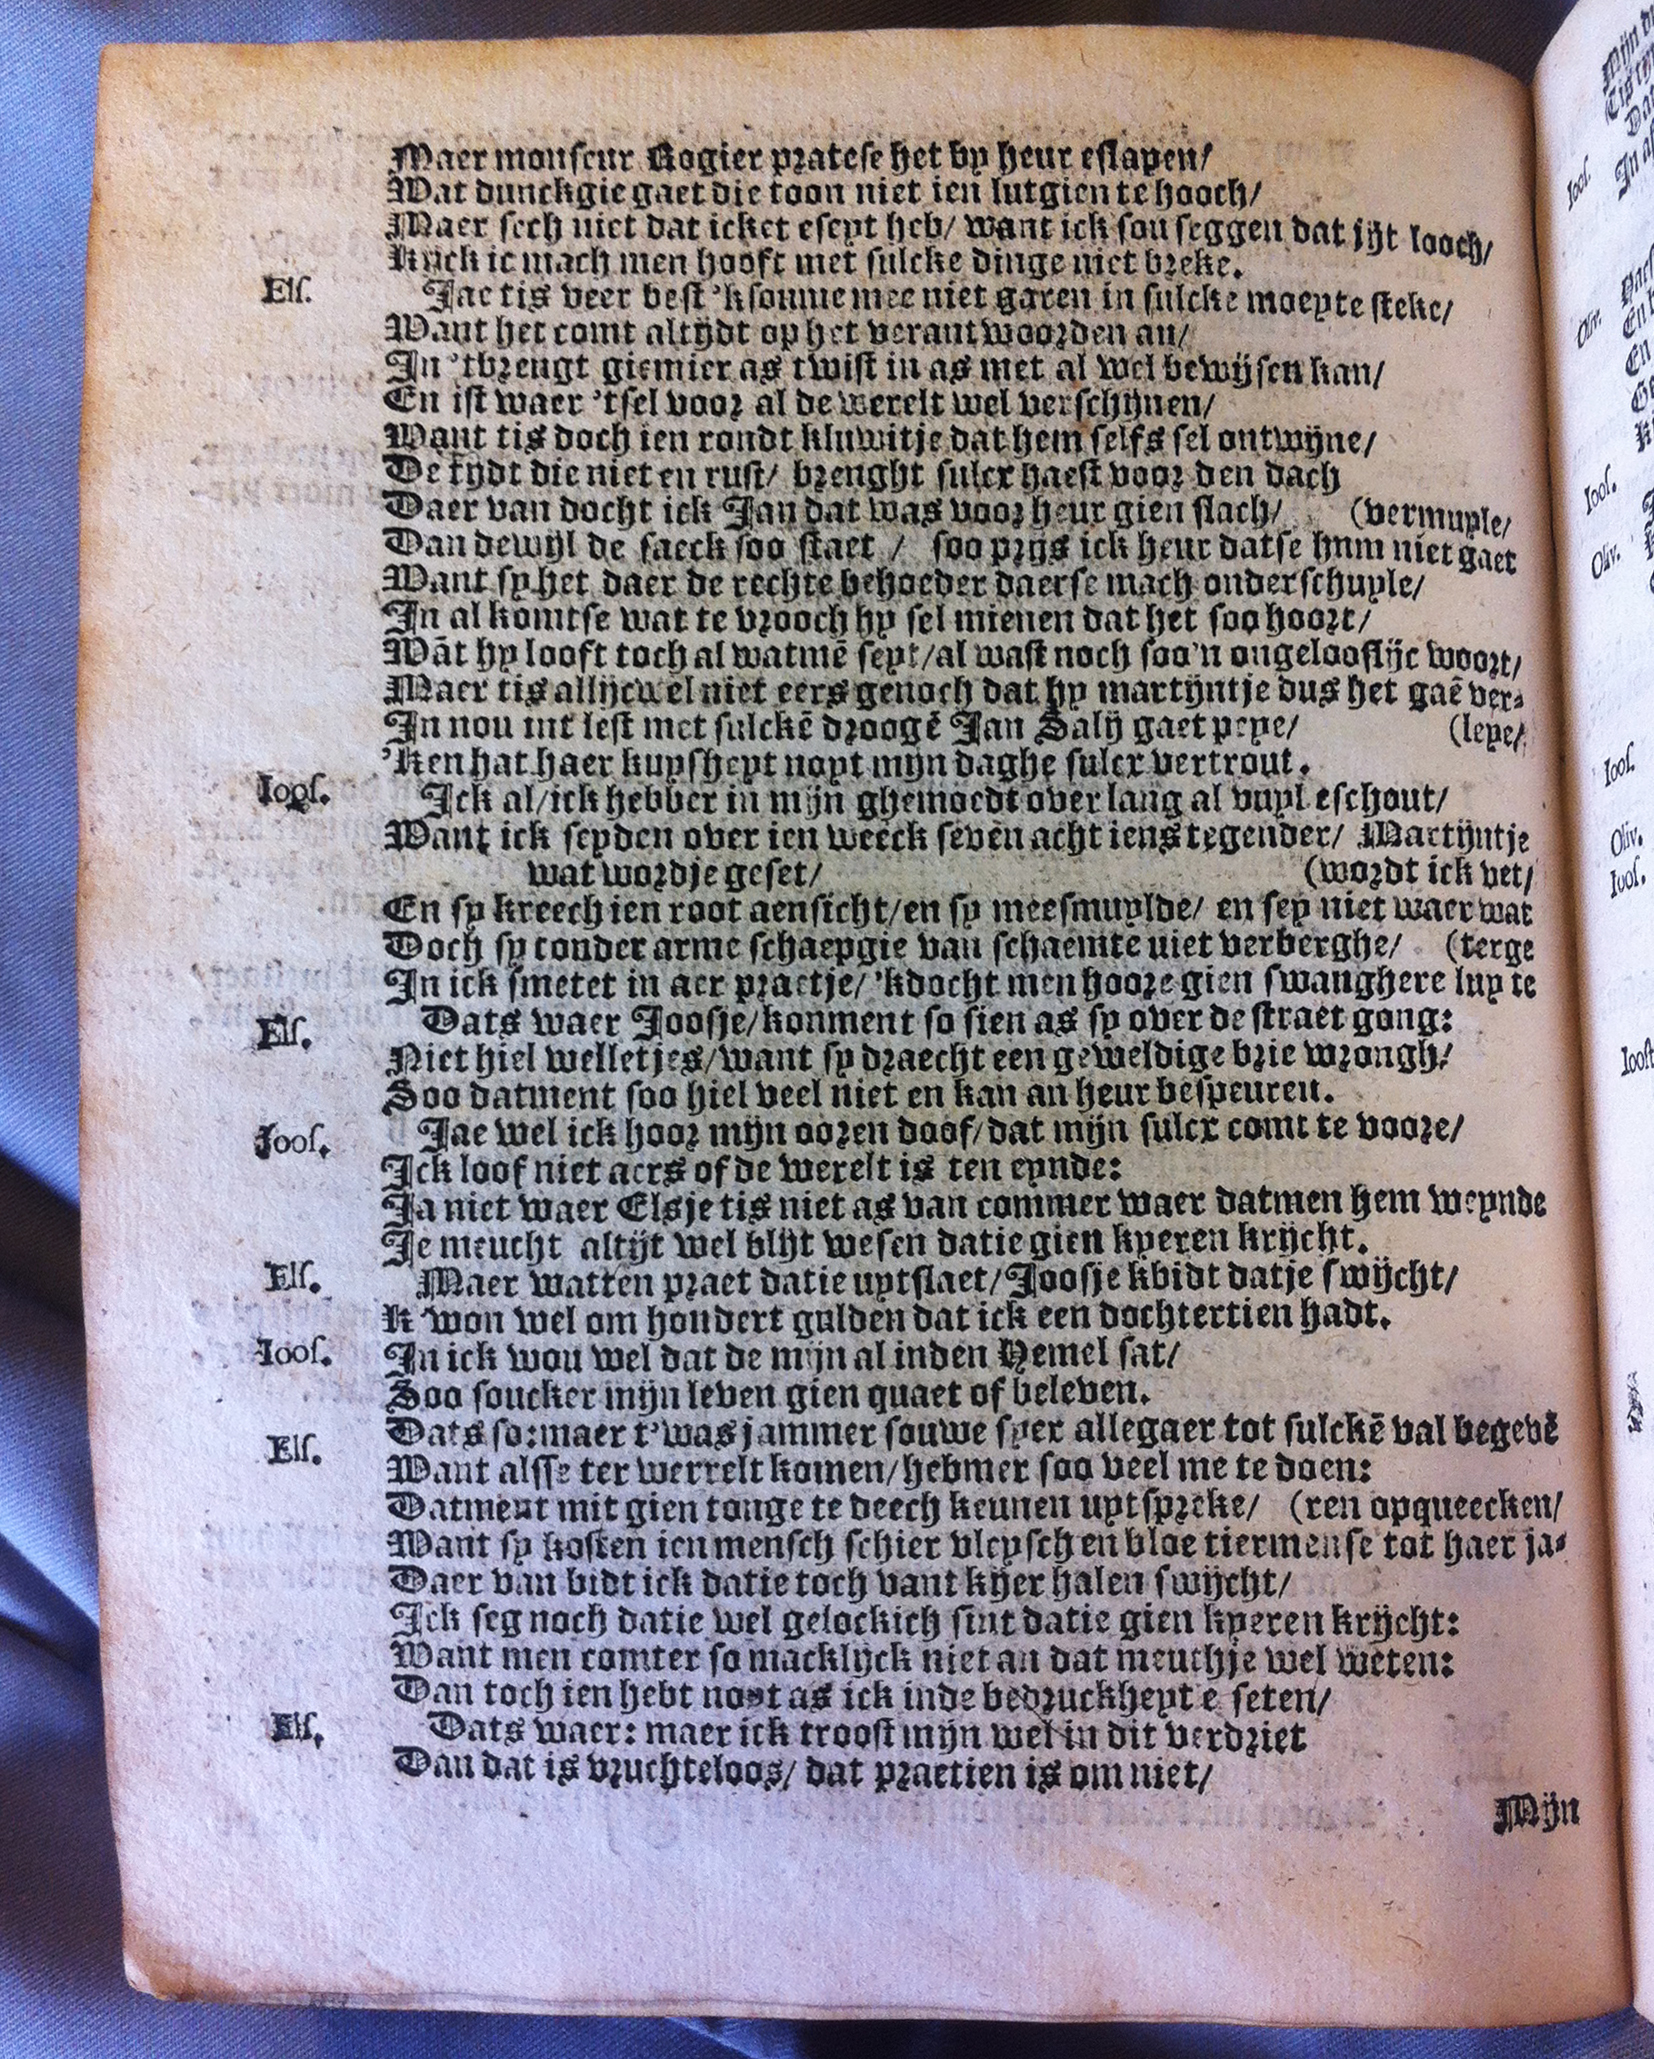 Maer monseur Rogier pratese het by heur eslapen/
Wat dunckgie gaet die toon niet ien lutgien te hooch/
Maer sech niet dat icket eseyt heb/ want ick sou seggen dat jijt looch/
Kijck ic mach men hooft met sulcke dinge niet breke.
Els. Jae tis veer best 'ksoume mee niet garen in sulcke moeyte steke/
Want het comt altijdt op het verantwoorden an/
In 'tbrengt giemier as twist in as met al wel bewijsen kan/
En ist waer 'tsel voor al de werelt wel verschijnen/
Want tis doch ien rondt kluwitje dat hem selfs sel ontwijne/
De tijdt die niet en rust/ brenght sulcx haest voor den dach
Daer van docht ick Jan dat was voor heur gien slach/ (vermuyle/
Dan dewijl de saeck soo staet / soo prijs ick heur datse hum niet gaet
Want sy het daer de rechte behoeder daerse mach onderschuyle/
In al komtse wat te vrooch hy sel mienen dat het soo hoort/
Wāt hy looft toch al watmē seyt/al wast noch soo'n ongelooflijc woort/
Maer tis allijcwel niet eers genoch dat hy martijntje dus het gaē ver-
In nou int lest met sulckē droogē Jan Salij gaet peye/ (leye/
'Ken hat haer kuysheyt noyt mijn daghe sulcx vertrout.
Ioos. Ick al/ick hebber in mijn ghemoedt over lang al vuyl eschout/
Want ick seyden over ien weeck seven acht iens tegender/ Martijntje
wat wordje geset/ (wordt ick vet/
En sy kreech ien root aensicht/en sy meesmuylde/ en sey niet waer wat
Doch sy conder arme schaepgie van schaemte niet verberghe/ (terge
In ick smetet in aer praetje/ 'kdocht men hoore gien swanghere luy te
Els. Dats waer Joosje/konment so sien as sy over de straet gong:
Niet hiel welletjes/want sy draecht een geweldige brie wrongh/
Soo datment soo hiel veel niet en kan an heur bespeuren.
Joos. Jae wel ick hoor mijn ooren doof/dat mijn sulcx comt te voore/
Ick loof niet aers of de werelt is ten eynde:
Ja niet waer Elsje tis niet as van commer waer datmen hem weynde
Je meucht altijt wel blijt wesen datie gien kyeren krijcht.
Els. Maer watten praet datie uytslaet/Joosje kbidt datje swijcht/
K 'won wel om hondert gulden dat ick een dochtertien hadt.
Ioos. In ick wou wel dat de mijn al inden Hemel sat/
Soo soucker mijn leven gien quaet of beleven.
Els. Dats so:maer t'was jammer souwe syer allegaer tot sulckē val begevē
Want alsse ter werrelt komen/hebmer soo veel me te doen:
Datment mit gien tonge te deech keunen uytspreke/ (ren opqueecken/
Want sy kosten ien mensch schier vleysch en bloe tiermense tot haer ja-
Daer van bidt ick datie toch vant kijer halen swijcht/
Ick seg noch datie wel gelockich sint datie gien kyeren krijcht:
Want men comter so macklijck niet an dat meuchje wel weten:
Dan toch ien hebt noyt as ick inde bedruckheyt e seten/
Els. Dats waer: maer ick troost mijn wel in dit verdriet
Dan dat is vruchteloos/ dat praetien is om niet/
Mijn